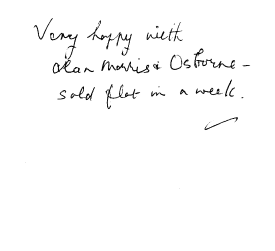 Very happy with
Alan Morris & Osborne -
sold flat in a week.